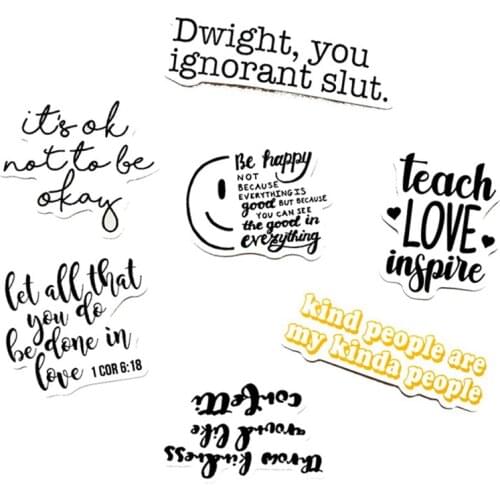 Dwight, you
ignorant slut.
it's ok
not to be
okay
Be happy
NOT
BECAUSE
EVERYTHING IS
good BUT BECAUSE
YOU CAN SEE
the good in
everything
teach
LOVE
inspire
let all that
you do
be done in
love 1 COR 6:18
kind people are
my kinda people
throw kindness
around like
confetti